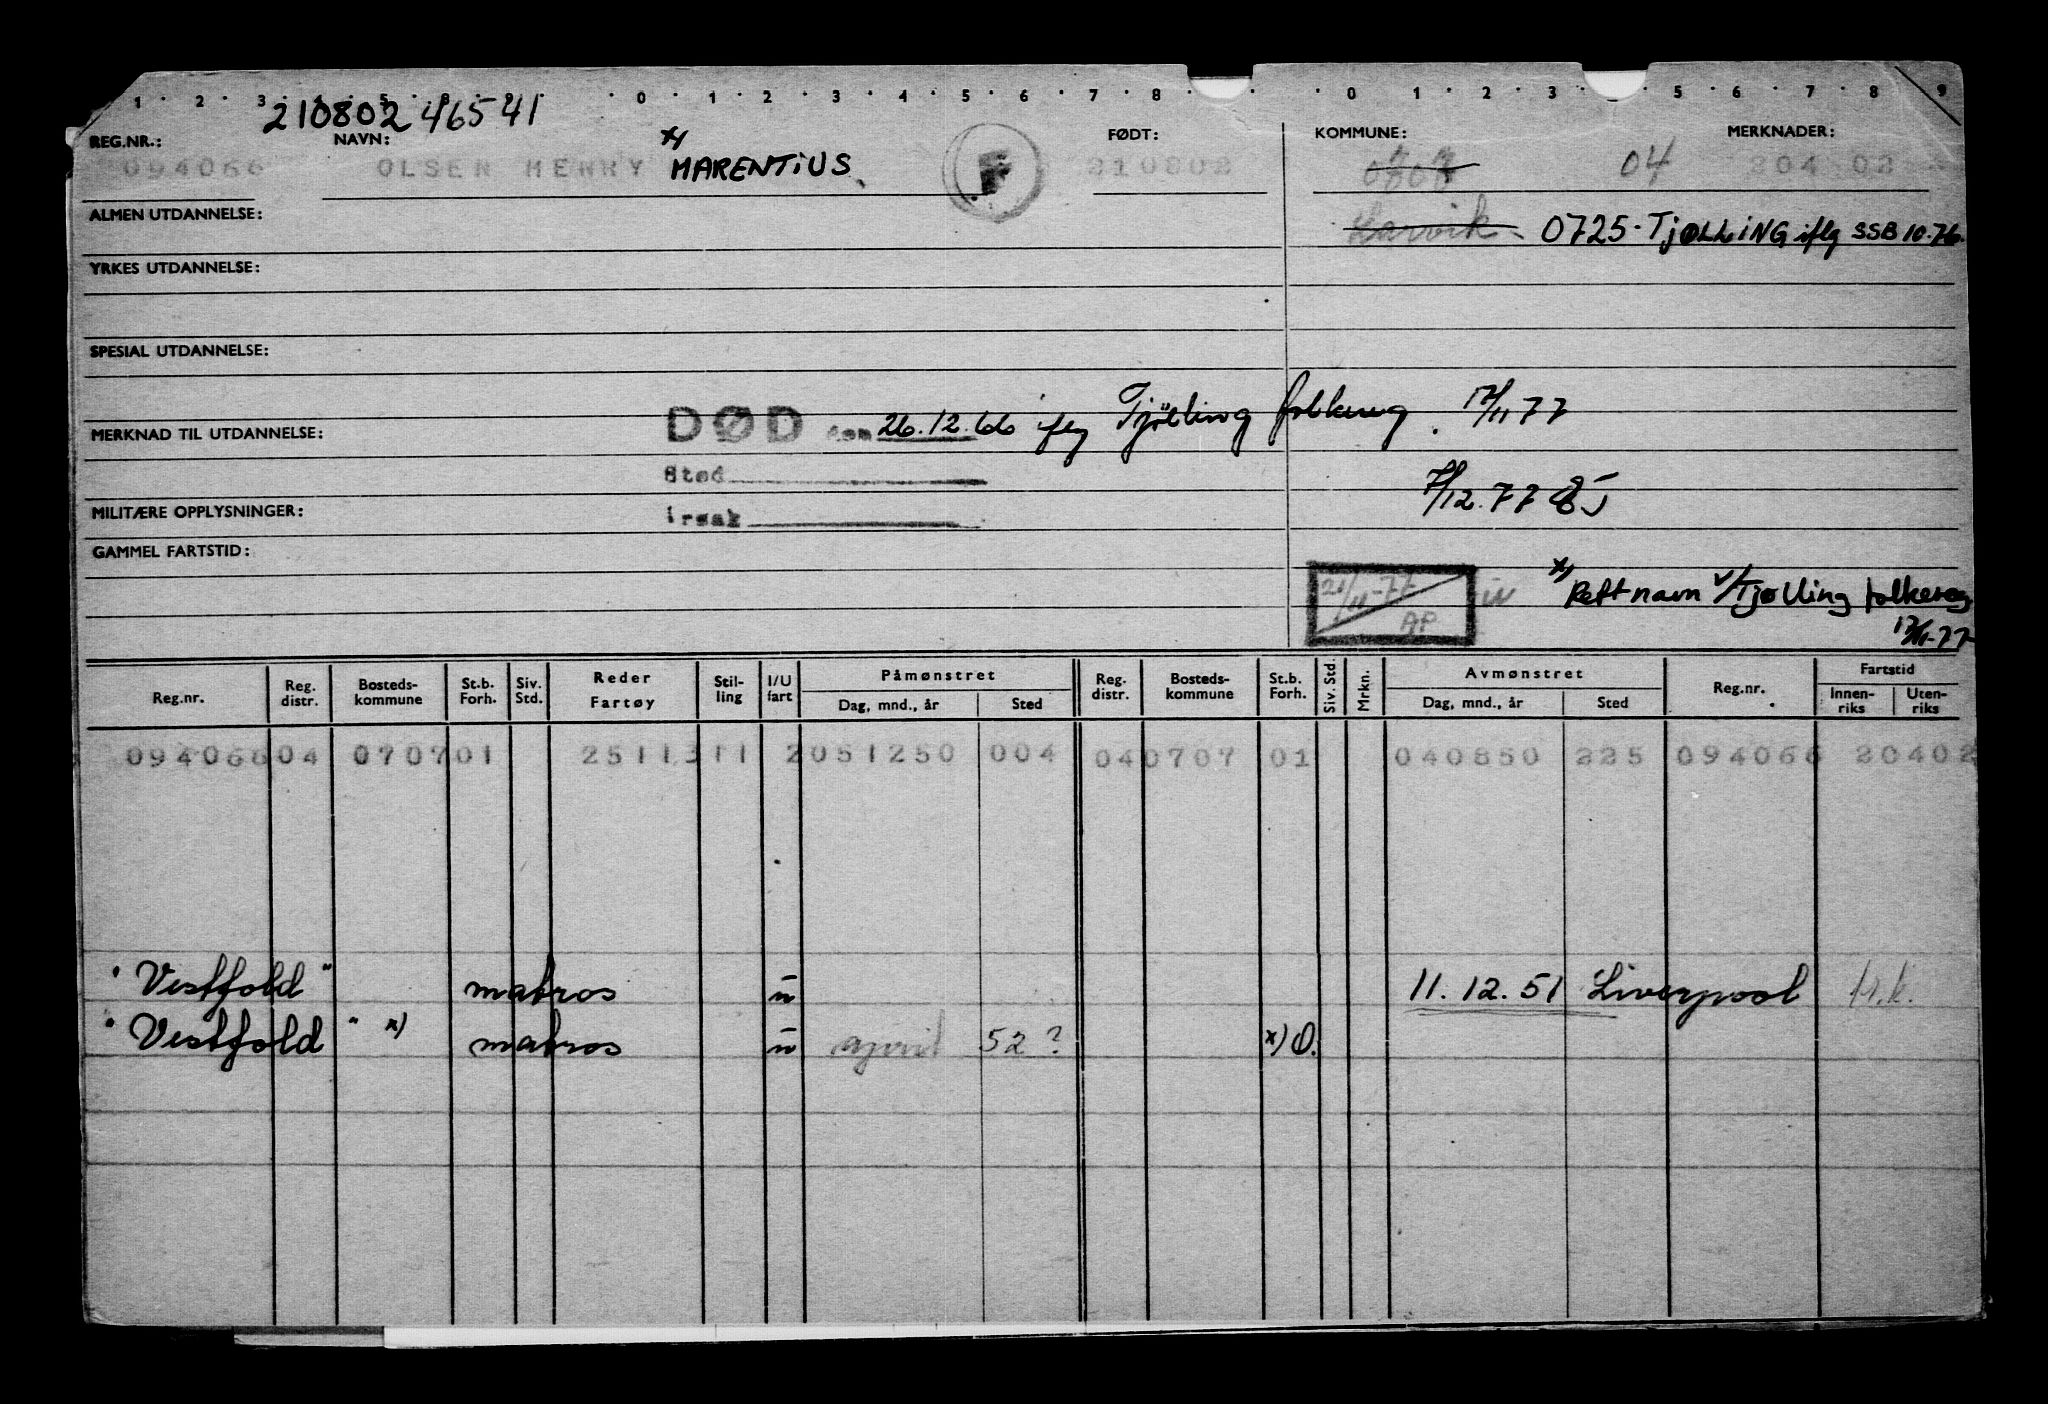 1 · 2 · 3 · 4 · 5 · 0 · 1 · 2 · 3 · 4 · 5 · 6 · 7 · 8 · 0 · 1 · 2 · 3 · 5 · 6 · 7 · 8 · 9
210802 46541
REG.NR.: NAVN: x) FØDT: KOMMUNE: MERKNADER:
094066 OLSEN HENRY MARENTIUS F 210802 0707 04 204 02
ALMEN UTDANNELSE: Larvik 0725 - TJØLLING iflg SSB 10-76.
YRKES UTDANNELSE:
SPESIAL UTDANNELSE:
MERKNAD TIL UTDANNELSE: DØD den 26.12.66 iflg Tjölling folkereg. 17/11 77
Sted
7/12.77
MILITÆRE OPPLYSNINGER: Årsak
GAMMEL FARTSTID:
21/11-77 AP
x) Rett navn v/Tjølling folkereg
17/11-77
Reg.nr. Reg. distr. Bosteds-kommune St.b. Forh. Siv. Std. Reder Fartøy Stil-ling I/U fart Påmønstret Dag, mnd., år Sted Reg. distr. Bosteds-kommune St.b. Forh. Siv. Std. Mrkn. Avmønstret Dag, mnd., år Sted Reg.nr. Fartstid Innen-riks Uten-riks
094066 04 0707 01 2511311 2 051250 004 04 0707 01 040850 225 094066 20402
"Vestfold" matros u 11.12.51 Liverpool tr.k.
"Vestfold" x) matros u april 52? x) O.